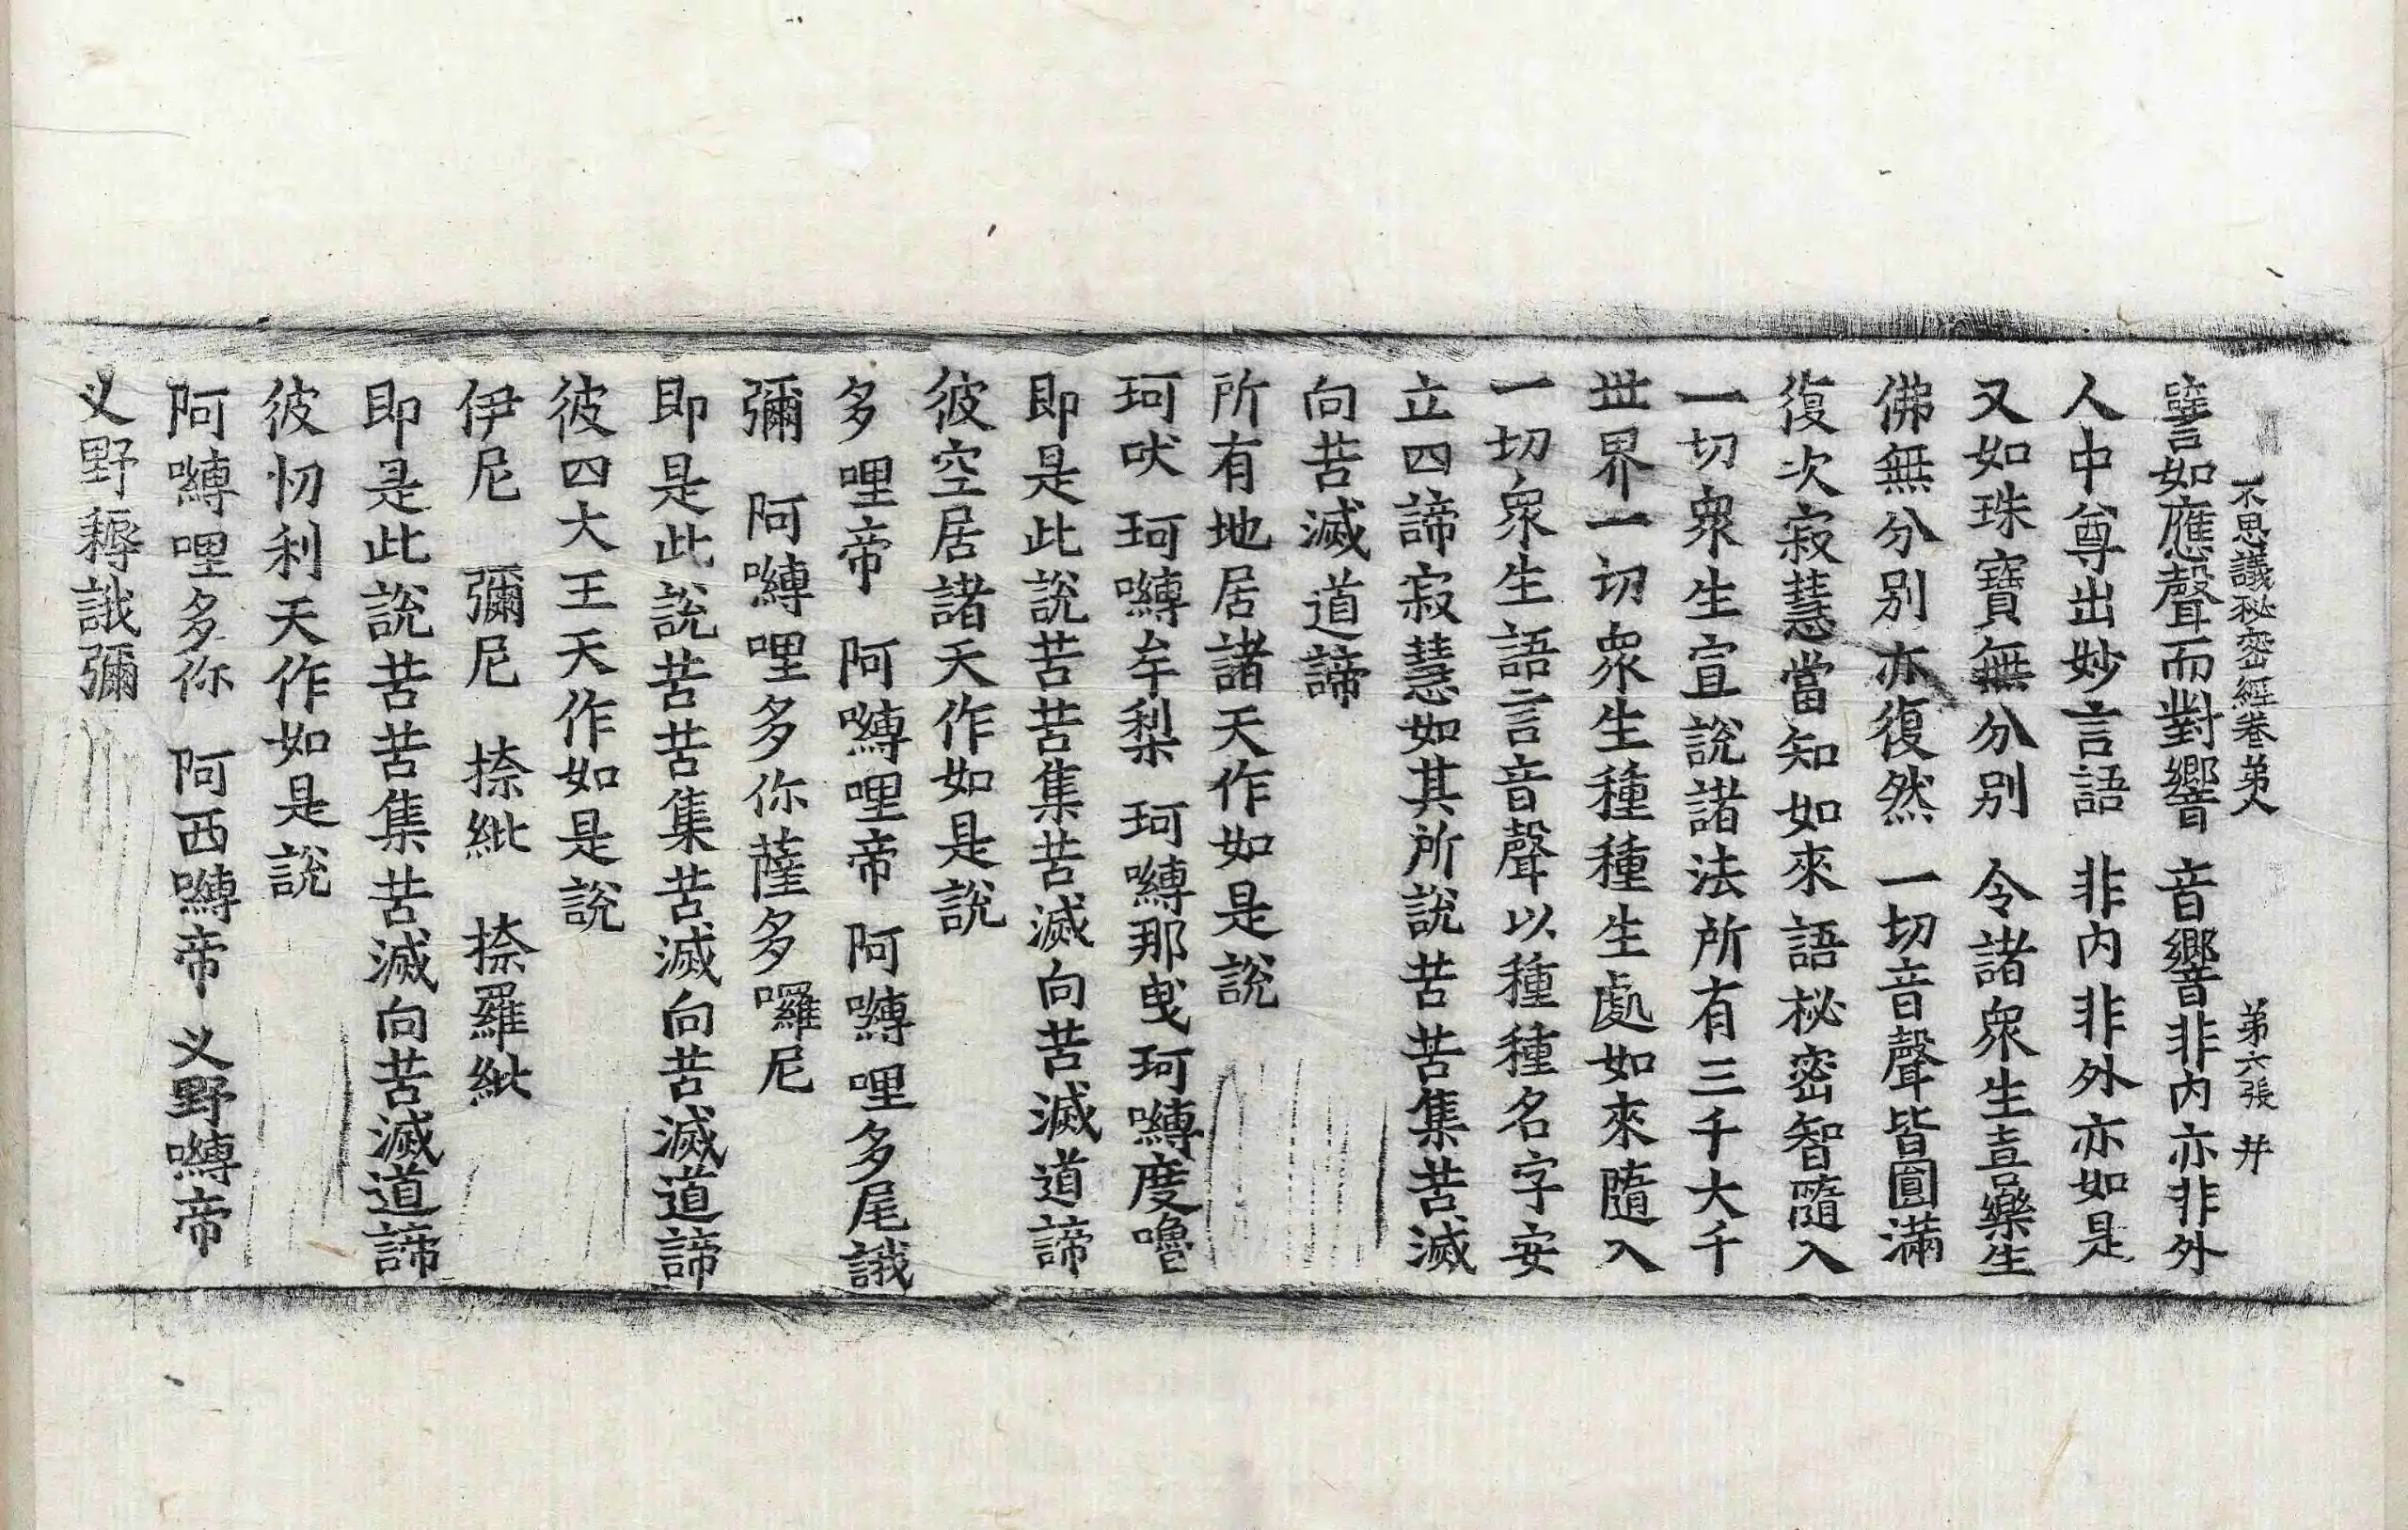 不思議秘密經卷第八 第六張 井
譬如應聲而對響 音響非内亦非外
人中尊出妙言語 非内非外亦如是
又如珠寶無分別 令諸衆生喜樂生
佛無分別亦復然 一切音聲皆圓滿
復次寂慧當知如來語秘密智隨入
一切衆生宣說諸法所有三千大千
世界一切衆生種種生處如來隨入
一切衆生語言音聲以種種名字安
立四諦寂慧如其所說苦苦集苦滅
向苦滅道諦
所有地居諸天作如是說
珂吠 珂嚩牟梨 珂嚩那曳珂嚩度嚕
即是此說苦苦集苦滅向苦滅道諦
彼空居諸天作如是說
多哩帝 阿嚩哩帝 阿嚩哩多尾誐
彌 阿嚩哩多你薩多囉尼
即是此說苦苦集苦滅向苦滅道諦
彼四大王天作如是說
伊尼 彌尼 捺紕 捺羅紕
即是此說苦苦集苦滅向苦滅道諦
彼忉利天作如是說
阿嚩哩多你 阿西嚩帝 义野嚩帝
义野耨誐彌